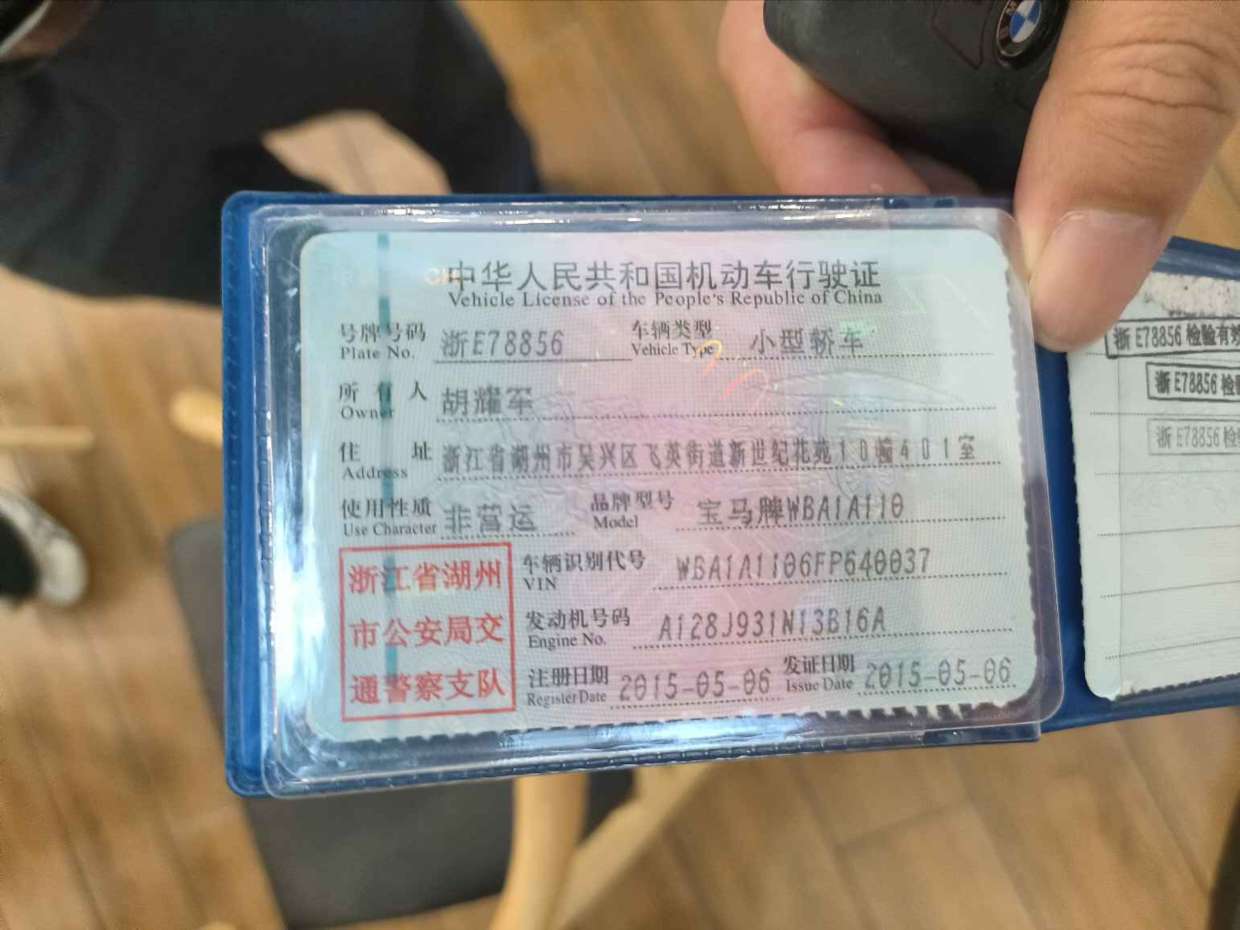 中华人民共和国机动车行驶证
Vehicle License of the People's Republic of China
号牌号码 浙E78856 车辆类型 小型轿车
Plate No. Vehicle Type
所有人 胡耀军
Owner
住址 浙江省湖州市吴兴区飞英街道新世纪花苑10幢401室
Address
使用性质 非营运 品牌型号 宝马牌WBA1A110
Use Character Model
浙江省湖州
市公安局交
通警察支队
车辆识别代号 WBA1A1106FP640037
VIN
发动机号码 A128J931N13B16A
Engine No.
注册日期 2015-05-06 发证日期 2015-05-06
Register Date Issue Date
浙E78856检验有效
浙E78856检
浙E78856检
BMW